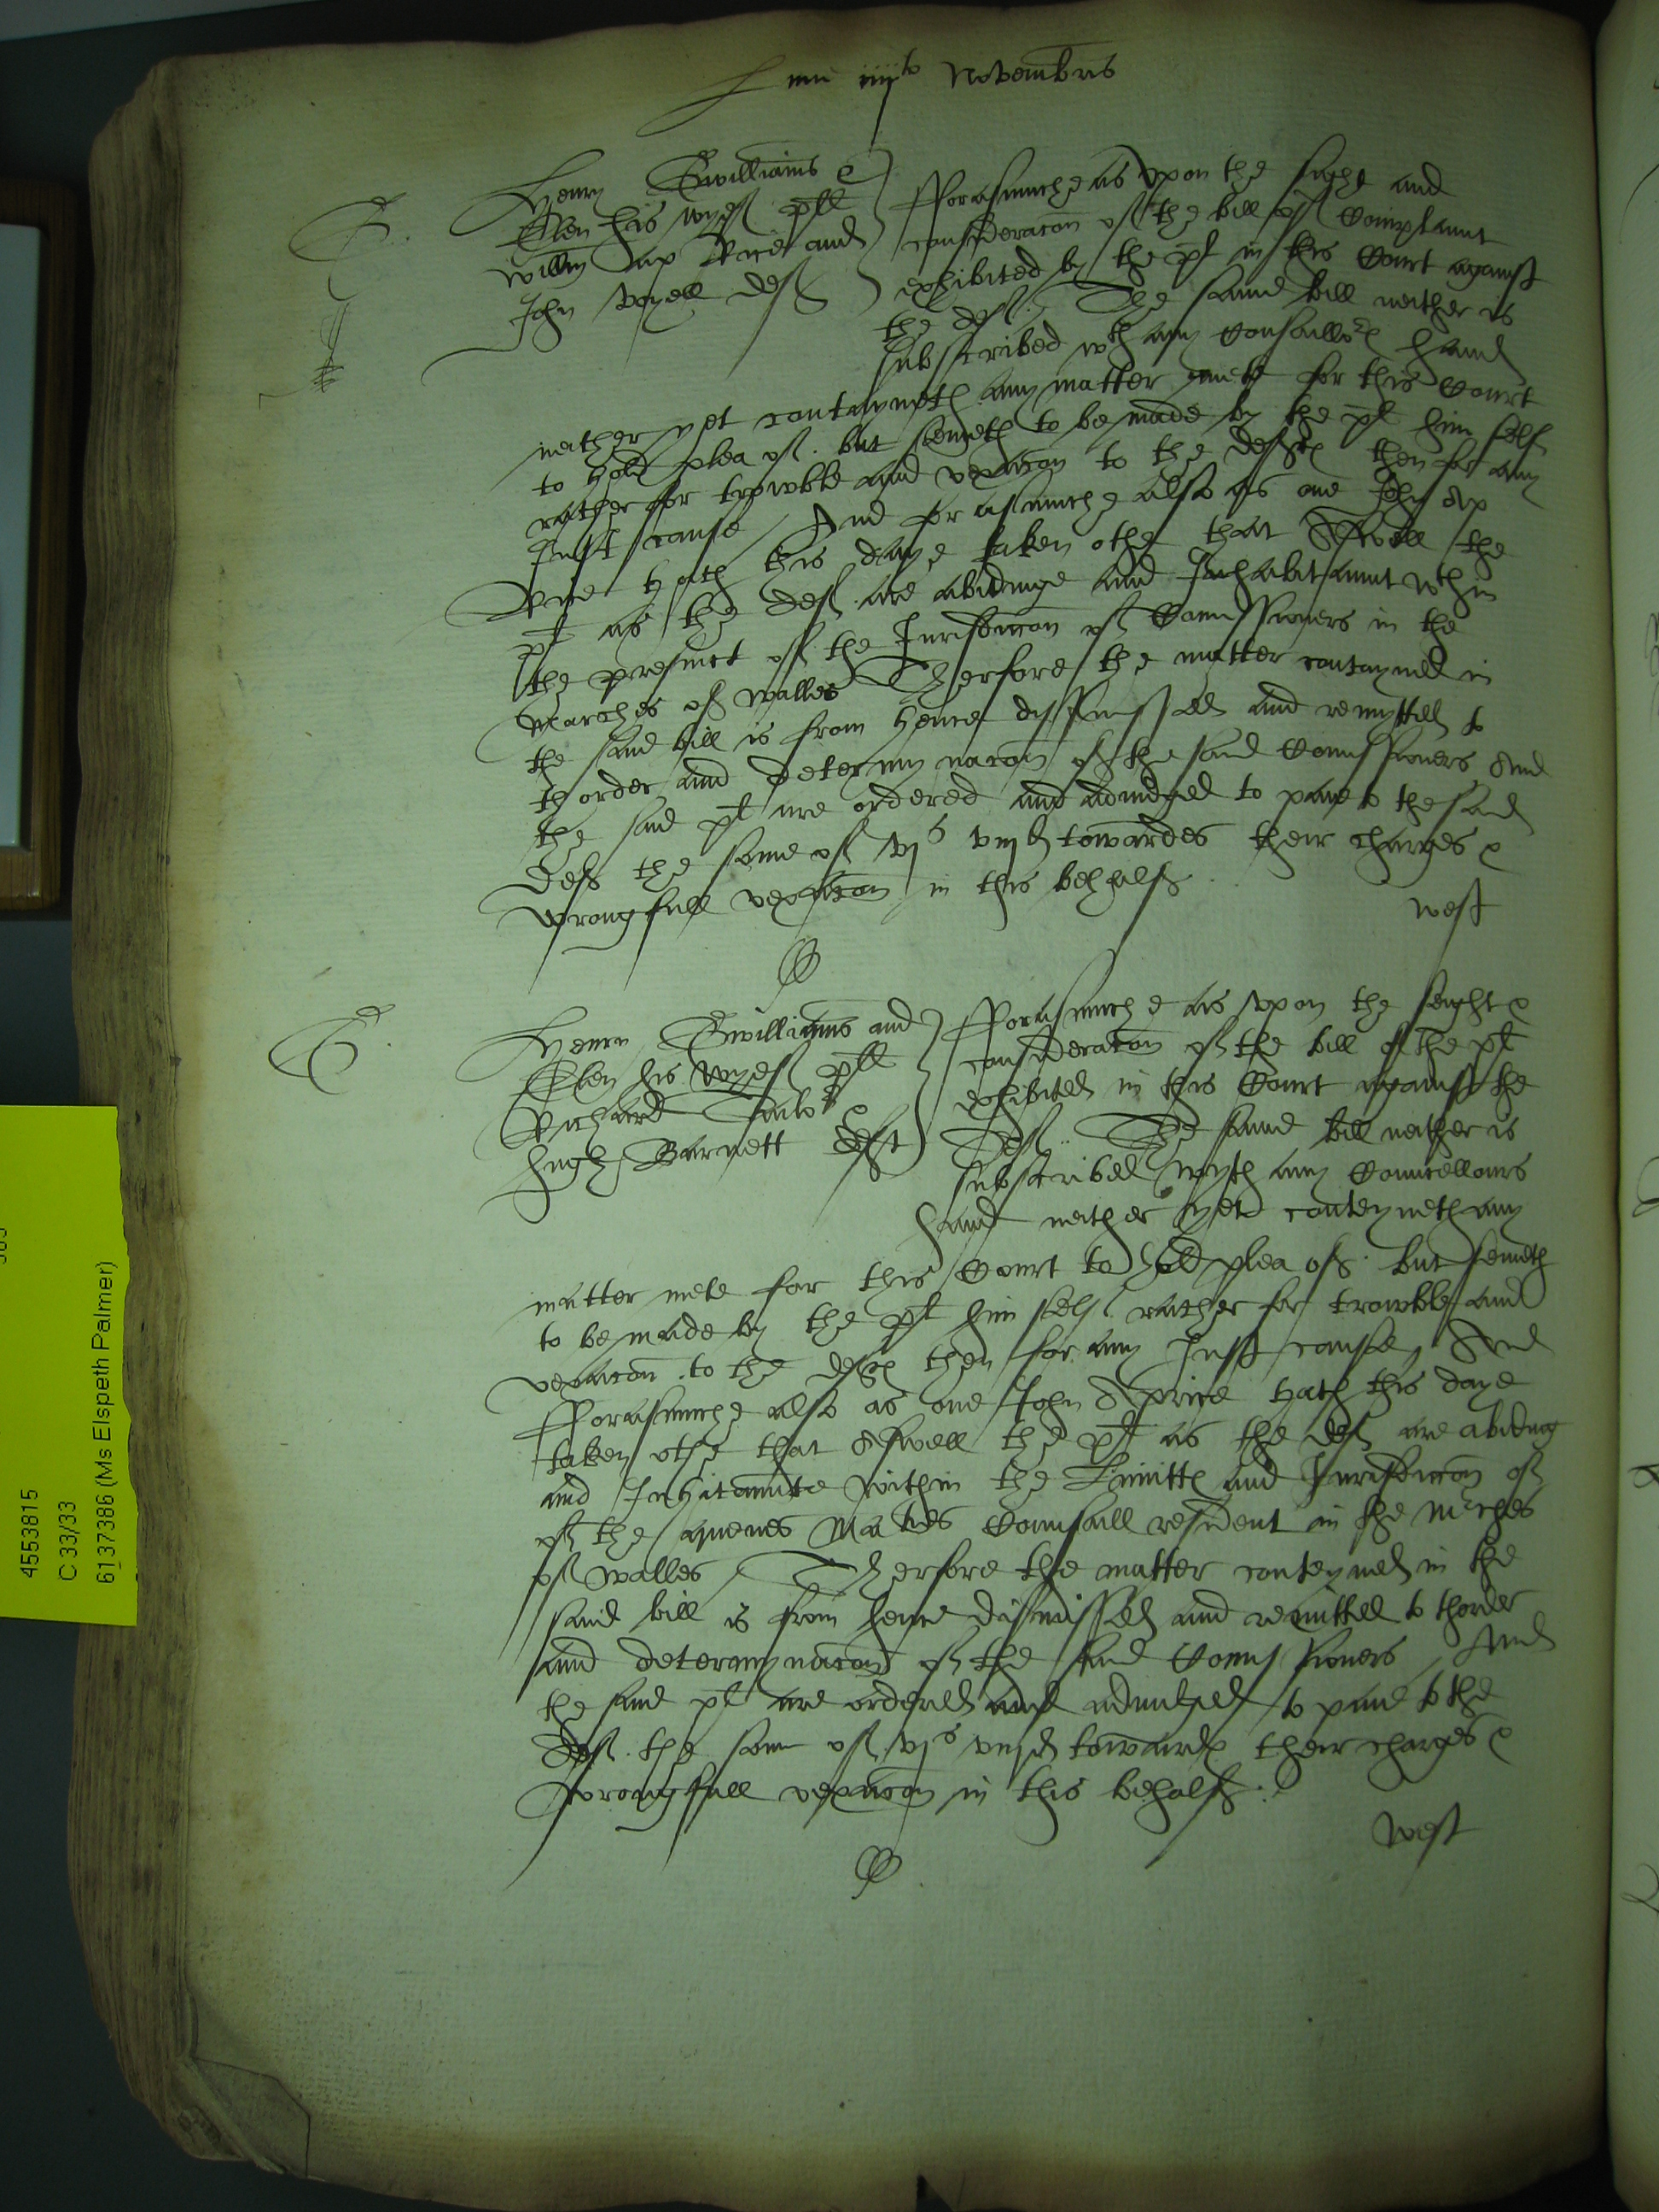 Lune iiijto Novembris
Henry Gwilliams &
Elen his wyef pltes
Willm ap Rice and
John Voyell def
fforasmuche as vpon the sight and
consideracon of the bill of Complaint
exhibited by the plt in this Court against
the def. The same bill neither is
subscribed wth any Consaillors hand
neither yet contayneth any matter mete for this Court
to hold plea of. but semeth to be made by the plt him self
rather for trowble and vexacon to the deftes then for any
Just cause / And for asmuche also as one John Ap
Rice hath this daye taken othe that Aswell the
plt as the def. are abidinge and Inhabitaunt wthin
the presinct of the Jurisdiccon of Comissioners in the
Marches of Walles Therfore the matter contayned in
the said bill is from hence dissmissed and remytted to
thorder and determynacon of the said Comissioners And
the said plt are ordered and adiudged to paye to the said
Def the some of vjs viijd towardes their charges &
wrongfull vexacon in this behalf.
West
Henry Gwilliams and
Elen his wyef pltes
Richard
Hugh Barnett deft
fforasmuche as vpon the seight &
consideracon of the bill of the plt
exhibited in this Court against the
Def. The same bill neither is
subscribed wyth any Councellours
hand neither yet conteyneth any
matter mete for this Court to hold plea of. but semeth
to be made by the plt him self rather for trowble and
vexacon to the deftes then for any Just cause, And
fforasmuche also as one John Aprice hath this daye
taken othe that Aswell the plt as the def are abiding
and Inhitaunte within the Limittes and Jurisdiccon of
of the quenes Maties Counsaill resident in the Mrches
of Walles / Therfore the matter conteyned in the
said bill is from hence dismissed and remitted to thorder
and determynacon of the said Comissioners / And
the said plt are ordered and adiudged to paie to the
Def. the some of vjs viijd towardes their charges &
wrongfull vexacon in this behalf.
West
4553815
C 33/33
6137386 (Ms Elspeth Palmer)